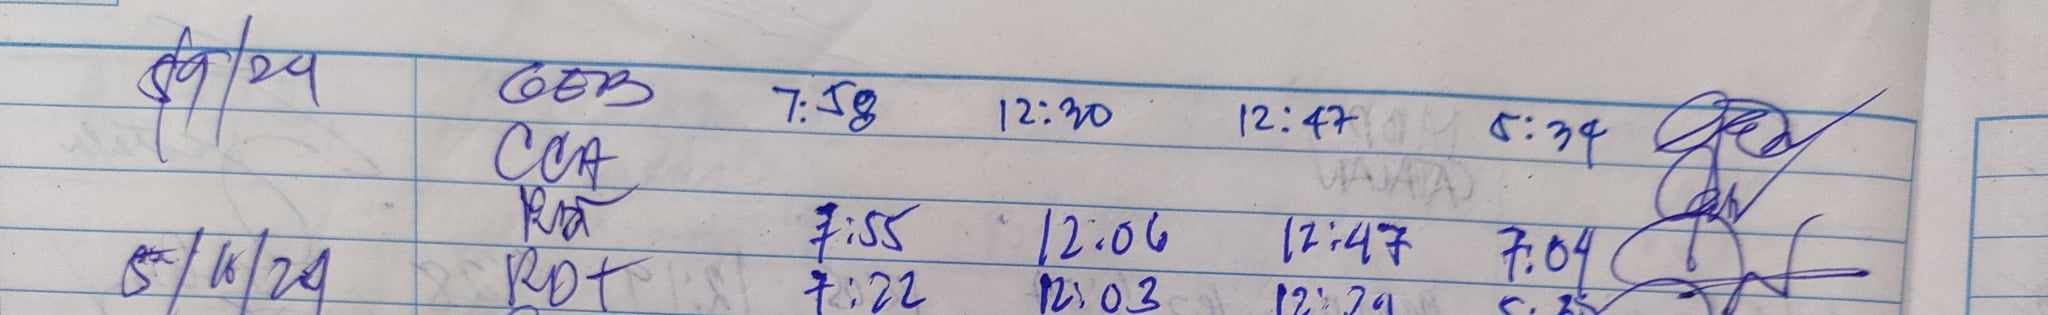 5/9/24 GEB 7:58 12:30 12:47 5:34
CCA
RDT 7:55 12:06 12:47 7:04
5/10/24 RDT 7:22 12:03 12:29